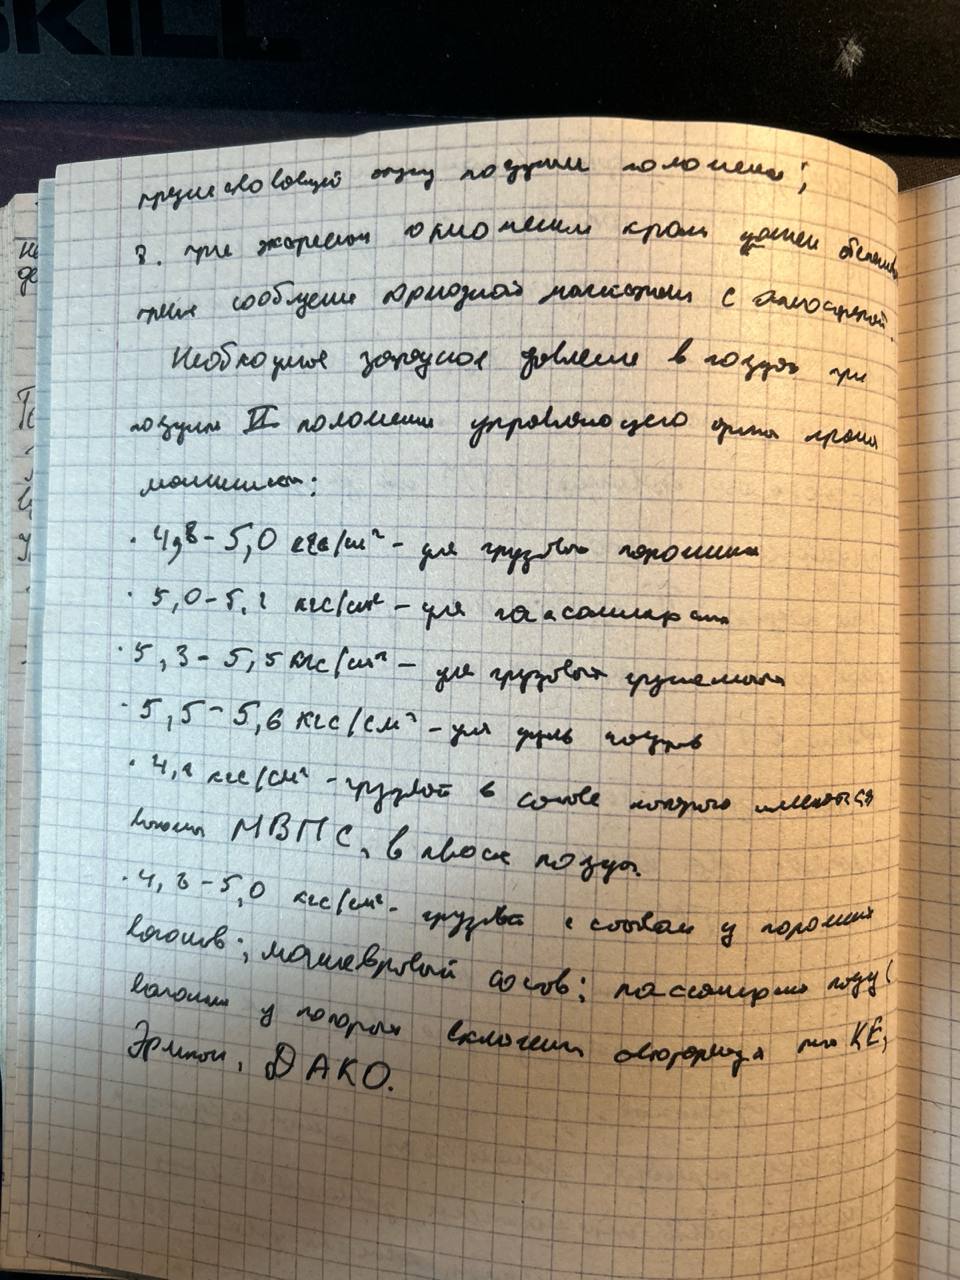 SKILL
поездным положением;
8. при экстренном положении крана должен обеспечив
сообщение тормозной магистрали с атмосферой.
Необходимое зарядное давление в поездах при
поездном II положении управляющего органа крана
машиниста:
· 4,8-5,0 кгс/см² - для грузовых порожних
· 5,0-5,2 кгс/см² - для пассажирских
· 5,3-5,5 кгс/см² - для грузовых груженых
· 5,5-5,6 кгс/см² - для поездов
· 4,2 кгс/см² - грузовой в составе которого имеются
вагоны МВПС, в хвосте поезда.
· 4,8-5,0 кгс/см² - грузовой с составом из порожних
вагонов; маневровый состав; пассажирские поезд
вагоны у которых включены авторежим КЕ,
Эрликон, DАКО.